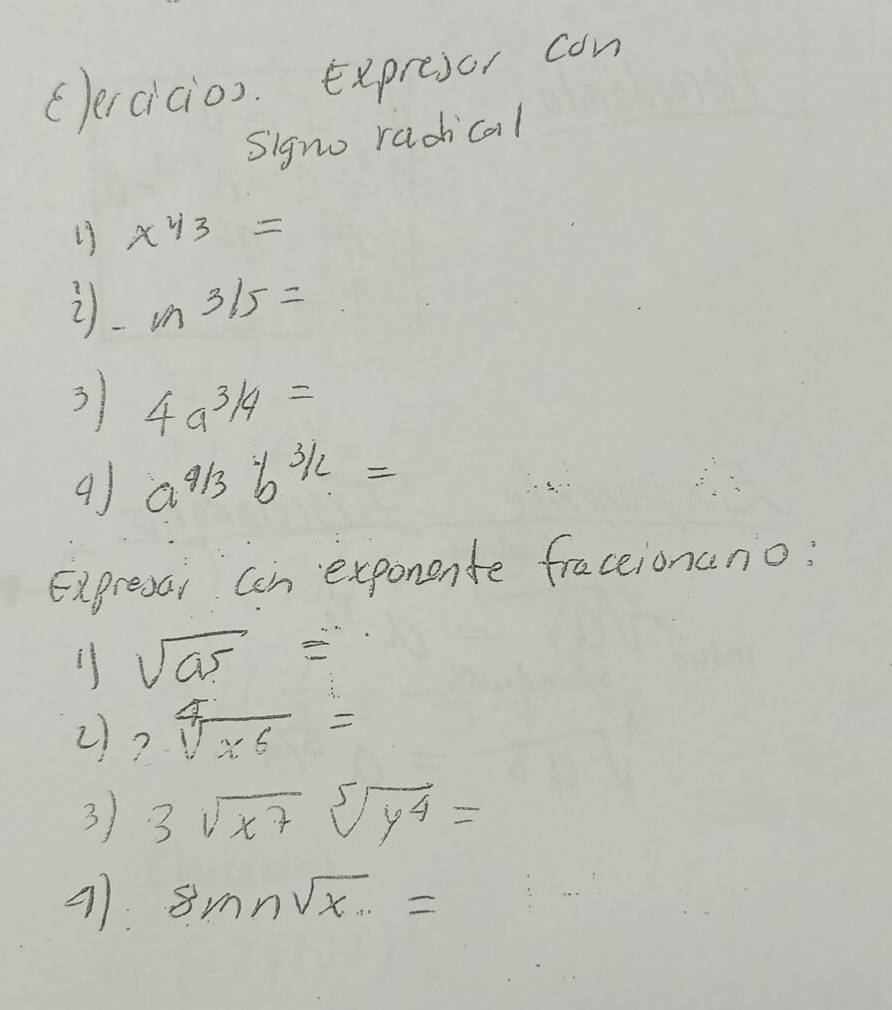 Ejercicios. Expresar con
signo radical
1) x^{1/3} =
2) - m^{3/5} =
3) 4a^{3/4} =
4) a^{4/3} b^{3/2} =
Expresar con exponente fraccionario:
1) √a5 =
2) 2 ∜x6 =
3) 3 √x7 ⁵√y4 =
4) 8mn√x =